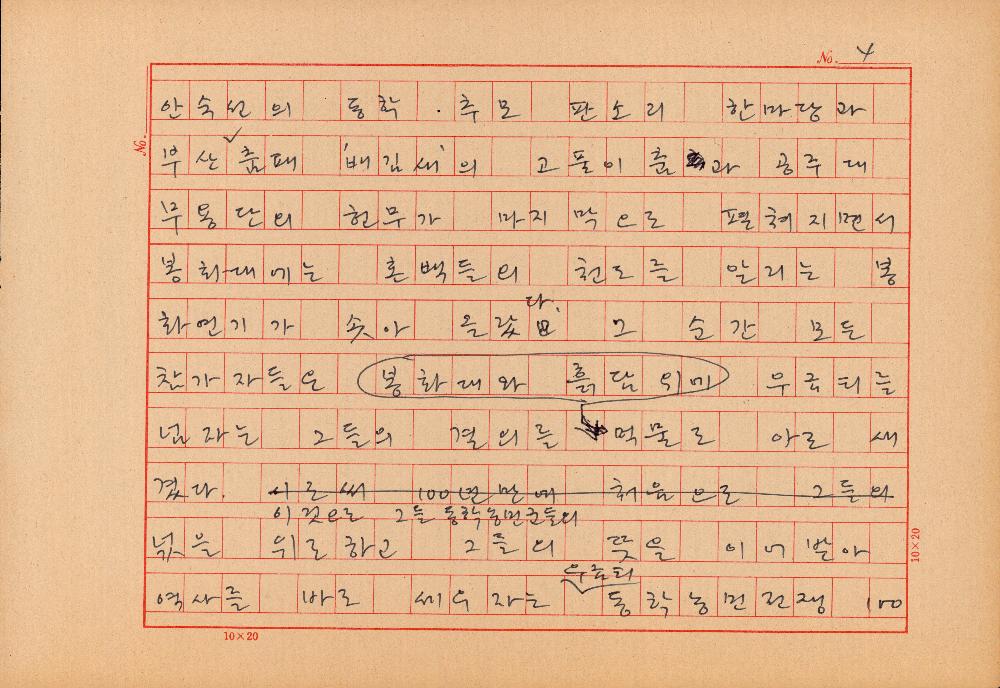 No. 4
No.
안숙선의 동학 · 추모 판소리 한마당과
부산 춤패 '배김새'의 고풀이 춤과 공주대
무용단의 헌무가 마지막으로 펼쳐지면서
봉화대에는 혼백들의 천도를 알리는 봉
화연기가 솟아 올랐다. 그 순간 모든
참가자들은 봉화대와 흙담위에 우금티를
넘자는 그들의 결의를 먹물로 아로 새
겼다. 이로써 100년만에 처음으로 그들의
이것으로 그들 동학농민군들의
넋을 위로하고 그들의 뜻을 이어받아
우금티
역사를 바로 세우자는 동학농민전쟁 100
10×20
10×20